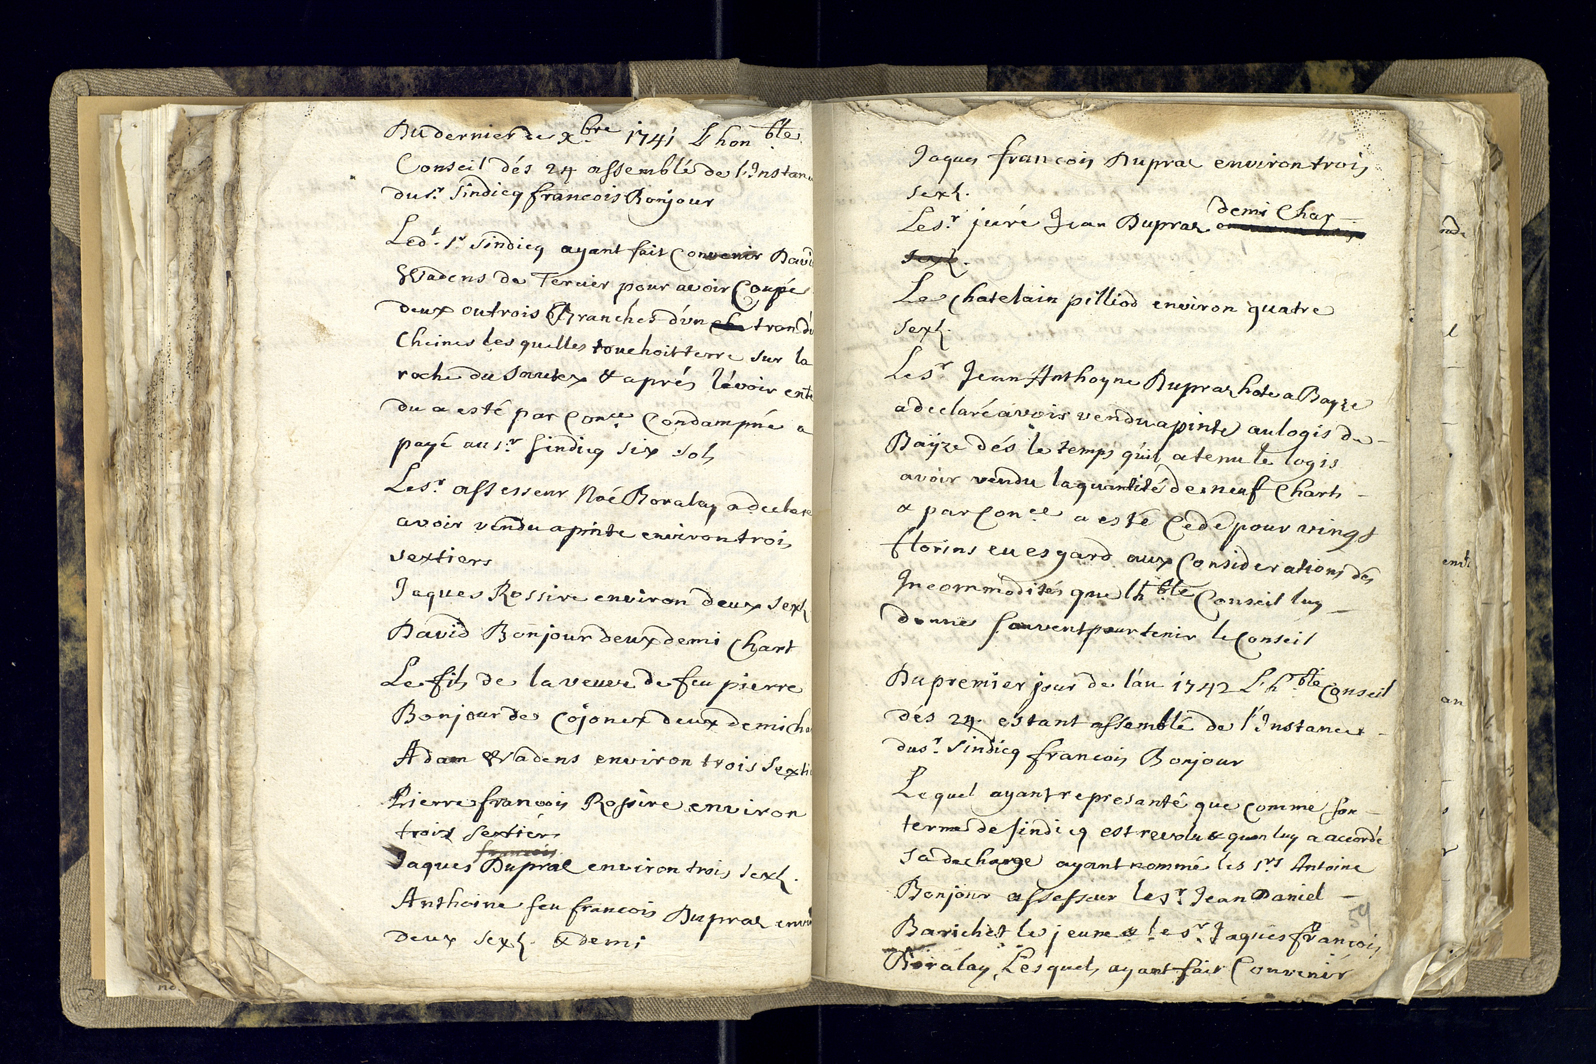 Du dernier de Xbre 1741 L hon ble
Conseil dés 24 assemblé de l'Instan
du sr. Sindicq francois Bonjour
Ledt. sr Sindicq ayant fait convenir Davi
Wadens de Tercier pour avoir Coupé
deux outrois Branches d'un tron du
Cheines lesquelles touchoit terre sur la
roche du Sautex & aprés lévoir ente
du a esté par Conce Condampné a
payé au sr Sindicq six Sols
Le sr assesseur Noé Boralay a declare
avoir vendu a pinte environ trois
sextiers
Jaques Rossire environ deux sexts
David Bonjour deux demi Chart
Le fils de la veuve de feu pierre
Bonjour de Cojonex deux demi cha
Adam Wadens environ trois Sexti
Pierre francois Rossire environ
trois Sextiers
francois
Jaques Dupraz environ trois Sext.
Anthoine feu francois Dupraz envir
deux Sext. & demi
Jaques francois Dupraz environ trois
sext.
demi Char
Le sr juré Jean Dupraz
sext.
Le Chatelain pilliod environ quatre
sext.
Le sr Jean Anthoyne Dupraz hote a Bayze
a declaré avois vendu a pinte au logis de
Baÿze dés le temps quil a tenu le logis
avoir vendu la quantité de neuf Charts
& par Conce a esté Cédé pour vingt
florins eu esgard aux Considerations dés
Incommodités que lh ble Conseil luy
donne souvent pour tenir le Conseil
Du premier jour de l'an 1742 L h ble Conseil
dés 24 estant assemblé de l'Instance
du sr Sindicq francois Bonjour
Lequel ayant represanté que comme son
terme de sindicq est revolu & quon luy a accordé
sa decharge ayant nommé les srs Antoine
Bonjour assesseur le sr Jean Daniel
Barichet le jeune & le sr Jaques françois
Boralay Lesquels ayant fait Convenir
59